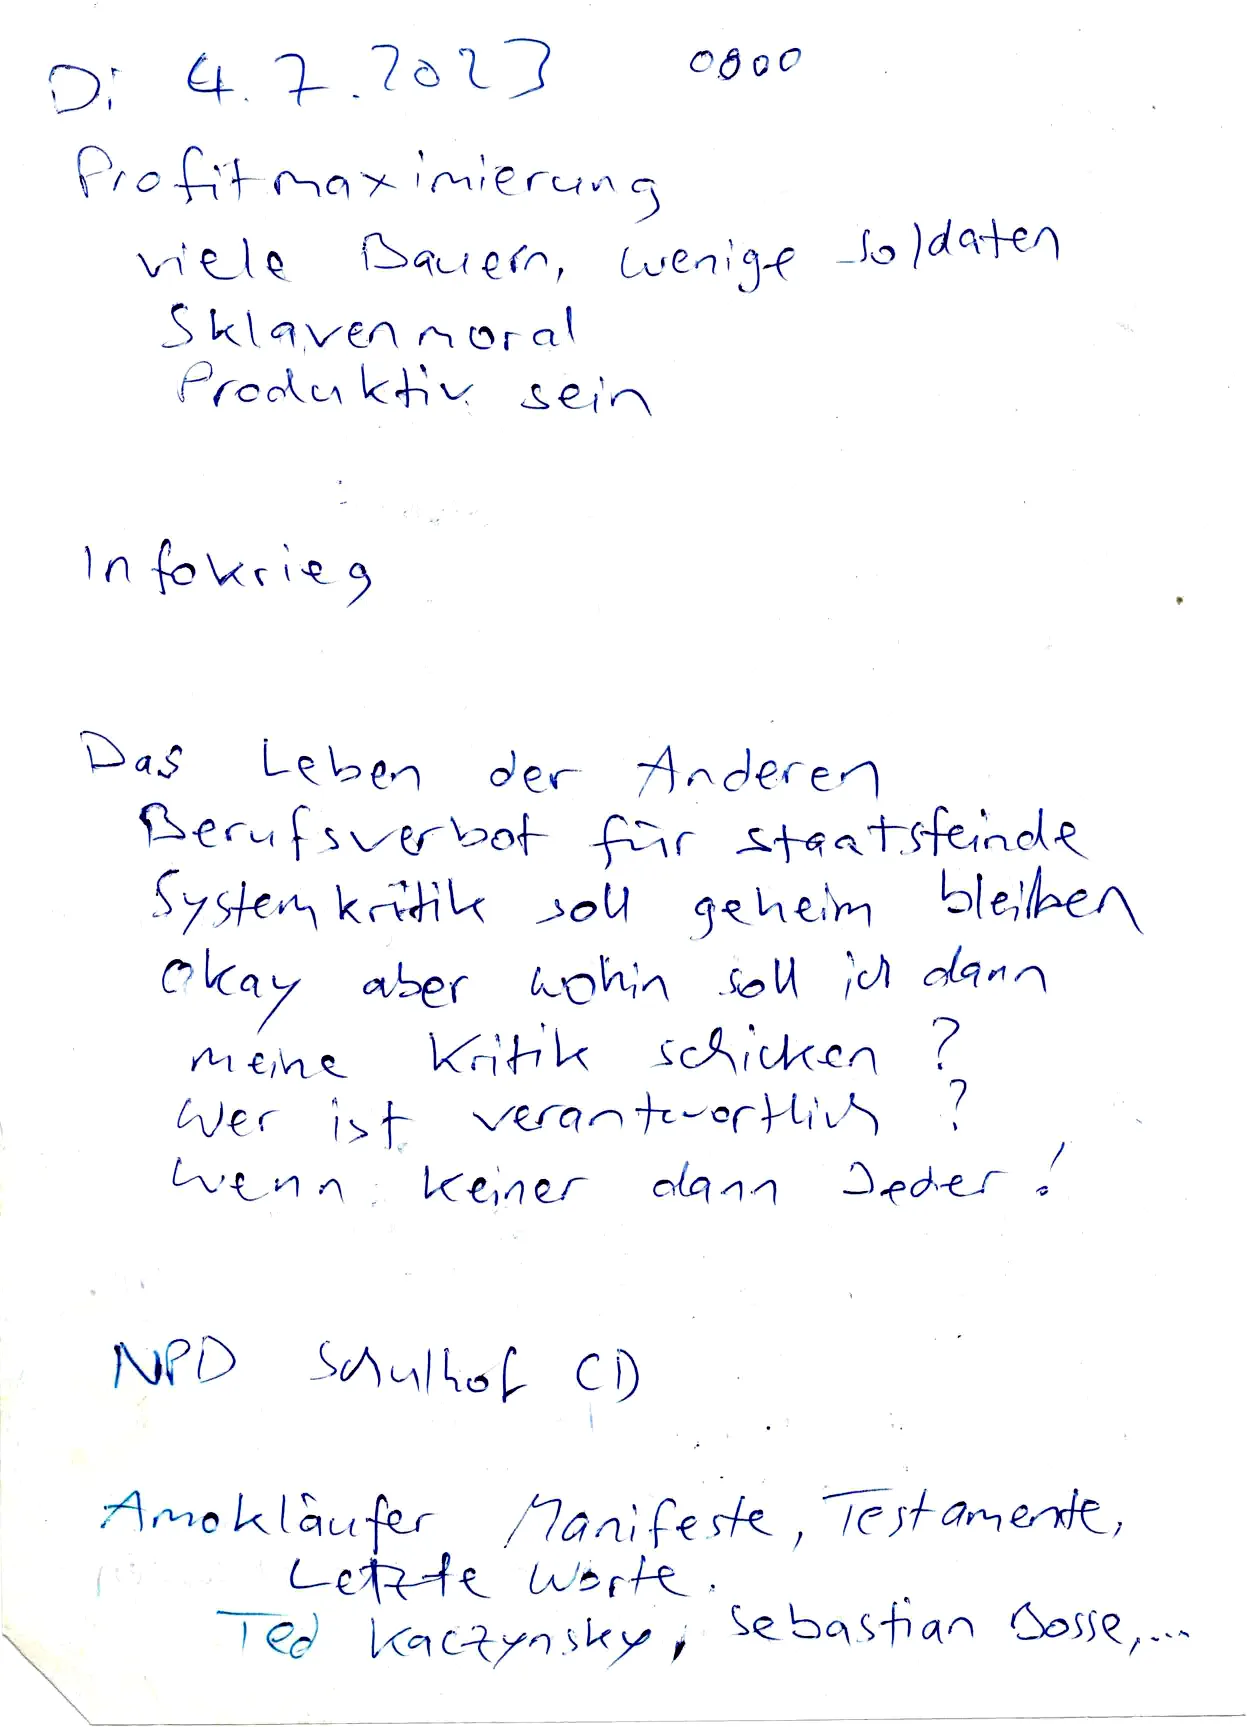 Di 4.7.2023 0800
Profitmaximierung
viele Bauern, wenige Soldaten
Sklavenmoral
Produktiv sein
Infokrieg
Das Leben der Anderen
Berufsverbot für Staatsfeinde
Systemkritik soll geheim bleiben
Okay aber wohin soll ich dann
meine Kritik schicken ?
Wer ist verantwortlich ?
Wenn keiner dann Jeder !
NPD Schulhof CD
Amokläufer Manifeste, Testamente,
Letzte Worte.
Ted Kaczynsky, Sebastian Bosse,...